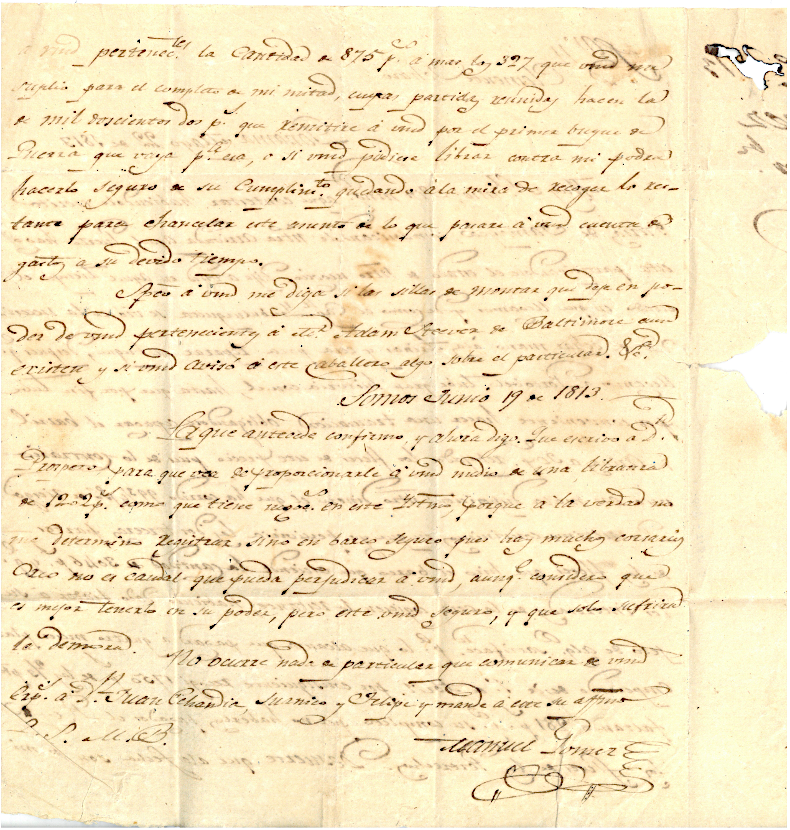 á vmd pertenec.tes la Cantidad de 875 p.s á mas los 327 que vmd me
suplio para el completo de mi mitad, cuyas partidas reunidas hacen la
de mil doscientos dos p.s que remitire á vmd por el primer buque de
Guerra que vaya p.a esa, o si vmd pudiere librar contra mi podra
hacerlo seguro de su Cumplim.to quedando á la mira de recoger lo res-
tante para chancelar este asunto de lo que pasare á vmd cuenta de
gastos a su devido tiempo.
Speo á vmd me diga si las sillas de montar que dejé en po-
der de vmd pertenecientes á Adam de Baltimore aun
existen y si vmd avisó á este Caballero algo sobre el particular. &c.
Junio 19 de 1813.
La que antecede confirmo, y ahora digo. Que escrivo a D.n
Prospero para que vea de proporcionarle á vmd medio de una libranza
de 1202 p.s como que tiene en este porque á la verdad no
que determino registrar, sino en barco seguro pues hay muchos corsarios
Creo no es caudal que pueda perjudicar á vmd, aunq.e considero que
es mejor tenerlo en su poder, pero este vmd seguro, y que solo sufrira
la demora.
No ocurre nada de particular que comunicar de vmd
á D.n Juan Echandia, y Felipe y mande á este su affmo
Q. S. M. B.
Manuel Gomez